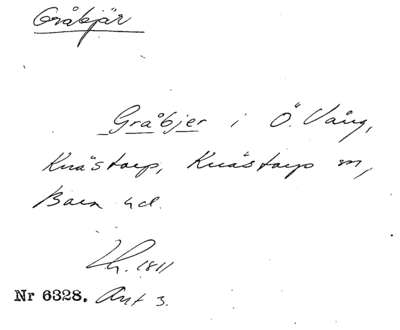 Gråbjär
Gråbjer i Ö. Vång,
Knästorp, Knästorps sn,
Bara hd.
LM. 1811
Nr 6328. Akt 3.